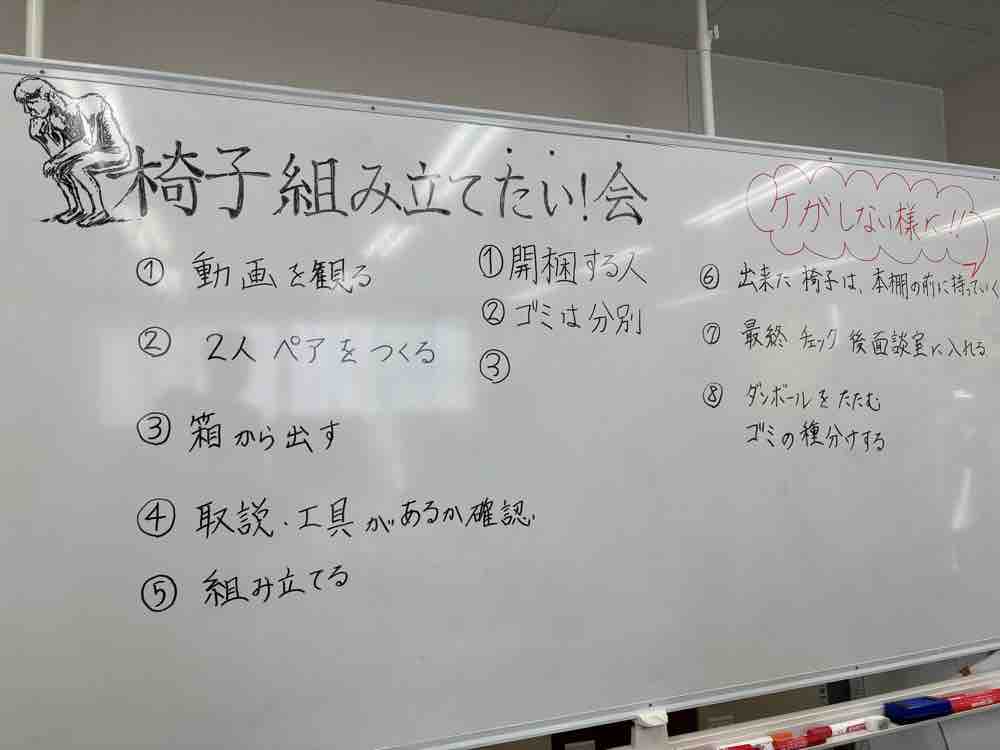 椅子組み立てたい!会
① 動画を観る
② 2人ペアをつくる
③ 箱から出す
④ 取説・工具があるか確認
⑤ 組み立てる
① 開梱する人
② ゴミは分別
③
ケガしない様に!!
⑥ 出来た椅子は、本棚の前に持っていく
⑦ 最終チェック後面談室に入れる
⑧ ダンボールをたたむ
ゴミの種分けする